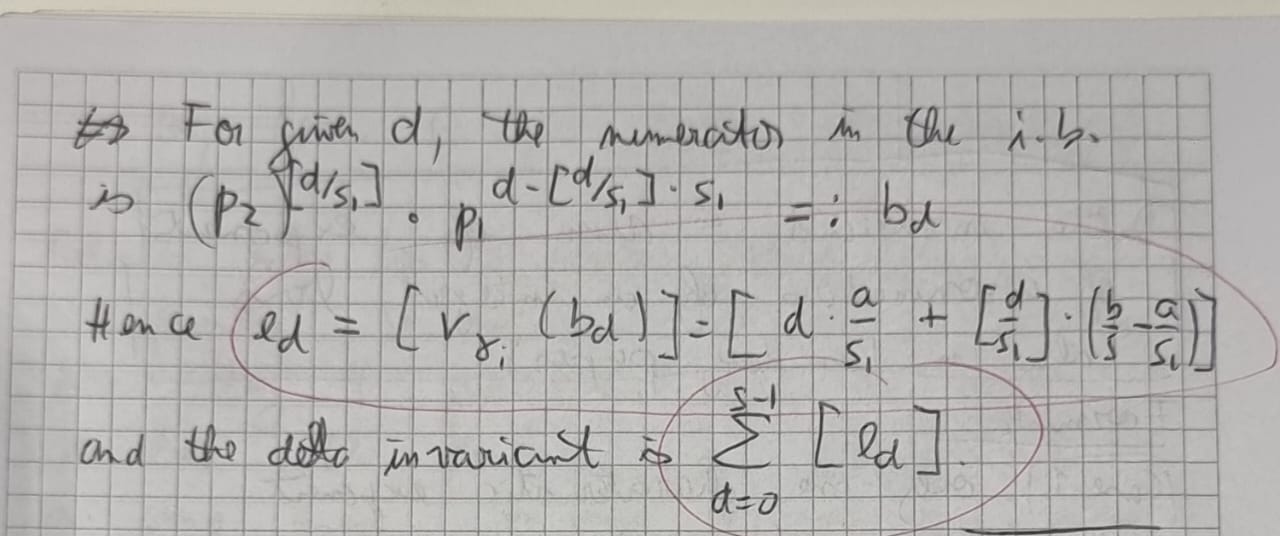 For given d, the numerator in the i.b.
is (p₂)^[d/s₁] · p₁^(d-[d/s₁]·s₁) =: b_d
Hence e_d = [v_γᵢ (b_d)] = [d · a/s₁ + [d/s₁] · (b/s - a/s₁)]
and the delta invariant is ∑_{d=0}^{s-1} [e_d].